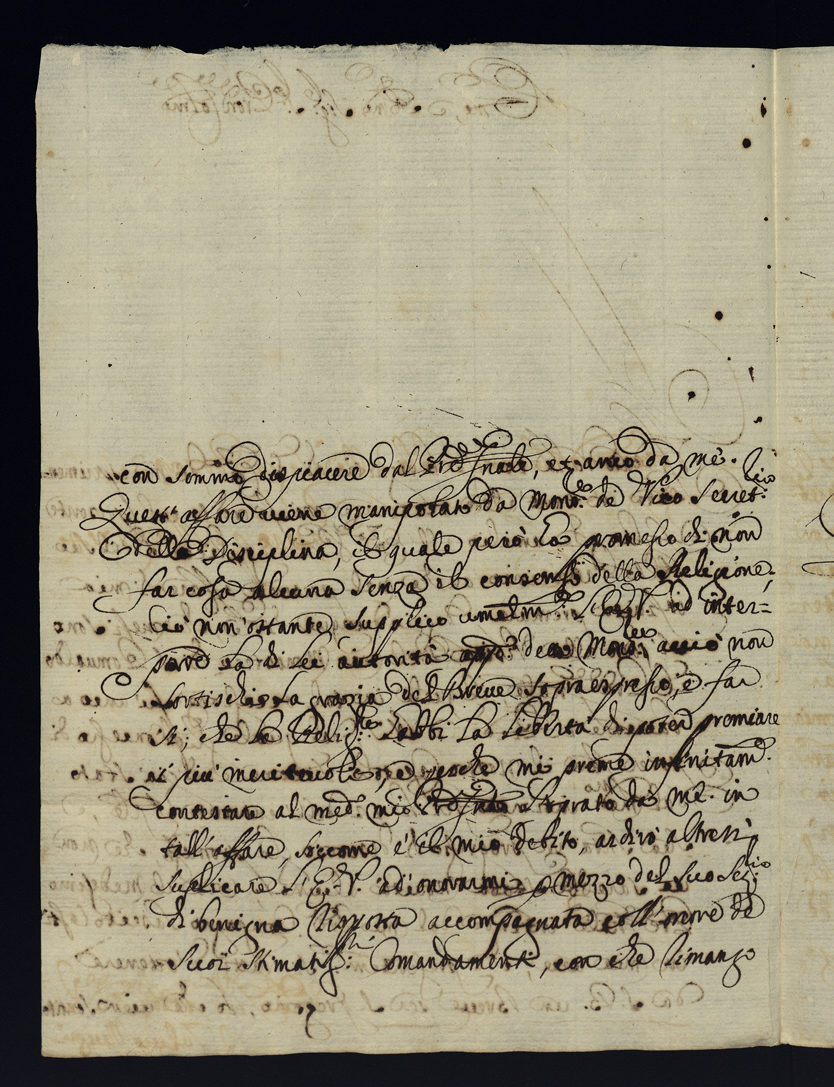 con sommo dispiacere dal, et anco da me.
Quest' affare viene manipolato da Mons.re de Vico Secret.rio
della Disciplina, il quale però ha promesso di non
far cosa alcuna senza il consenso della Religione.
Ciò non ostante, supplico umilm.te ad inter=
porre la di lei autorità app.o Mons.re acciò non
sortischi la grazia del Breve sopraespresso, e far
sì, che la Relig.ne habbi la libertà di poter premiare
i più meritevoli; e perche mi preme infinitam.te
contestar al med.o mio da me in
tall' affare, siccome è il mio debito, ardirò altresì
suplicare V.E. ad onorarmi p mezzo del suo
di benigna risposta accompagnata coll' onore de
suoi stimatiss.mi Comandamenti, con che rimango